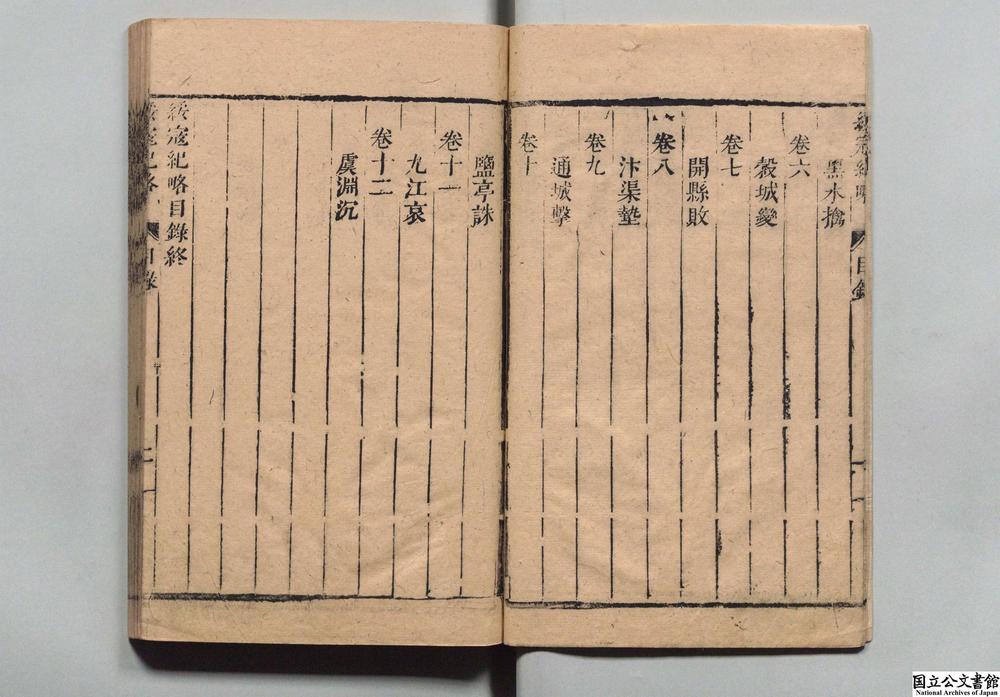 綏寇紀略
目錄
黑水擒
卷六
穀城變
卷七
開縣敗
卷八
汴渠墊
卷九
通城擊
卷十
鹽亭誅
卷十一
九江哀
卷十二
虞淵沉
綏寇紀略目錄終
綏寇紀略
目錄
二
国立公文書館
National Archives of Japan